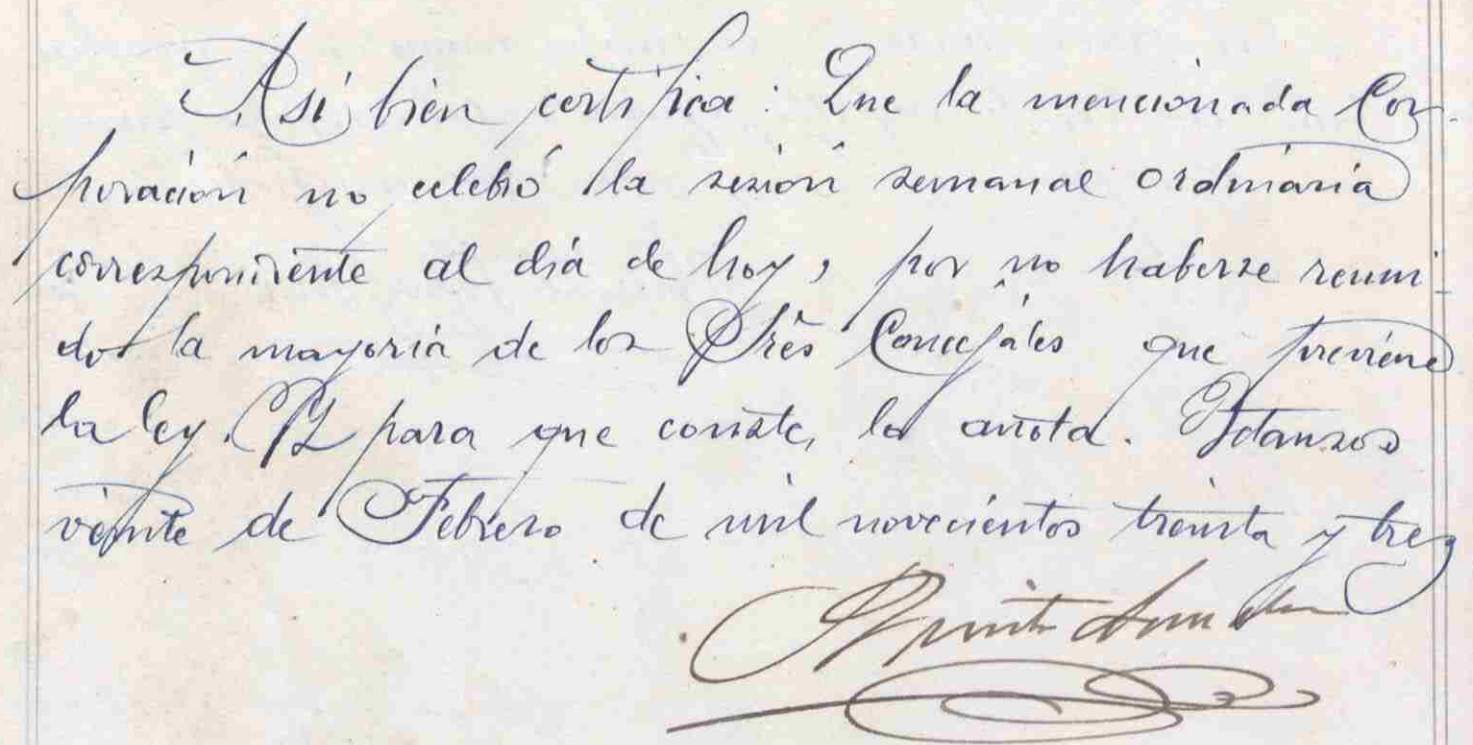 Así bien certifica: Que la mencionada Cor-
poración no celebró la sesión semanal ordinaria
correspondiente al día de hoy, por no haberse reuni-
do la mayoría de los Sres Concejales que previene
la ley. Y para que conste, lo anota. Betanzos
veinte de Febrero de mil novecientos treinta y tres